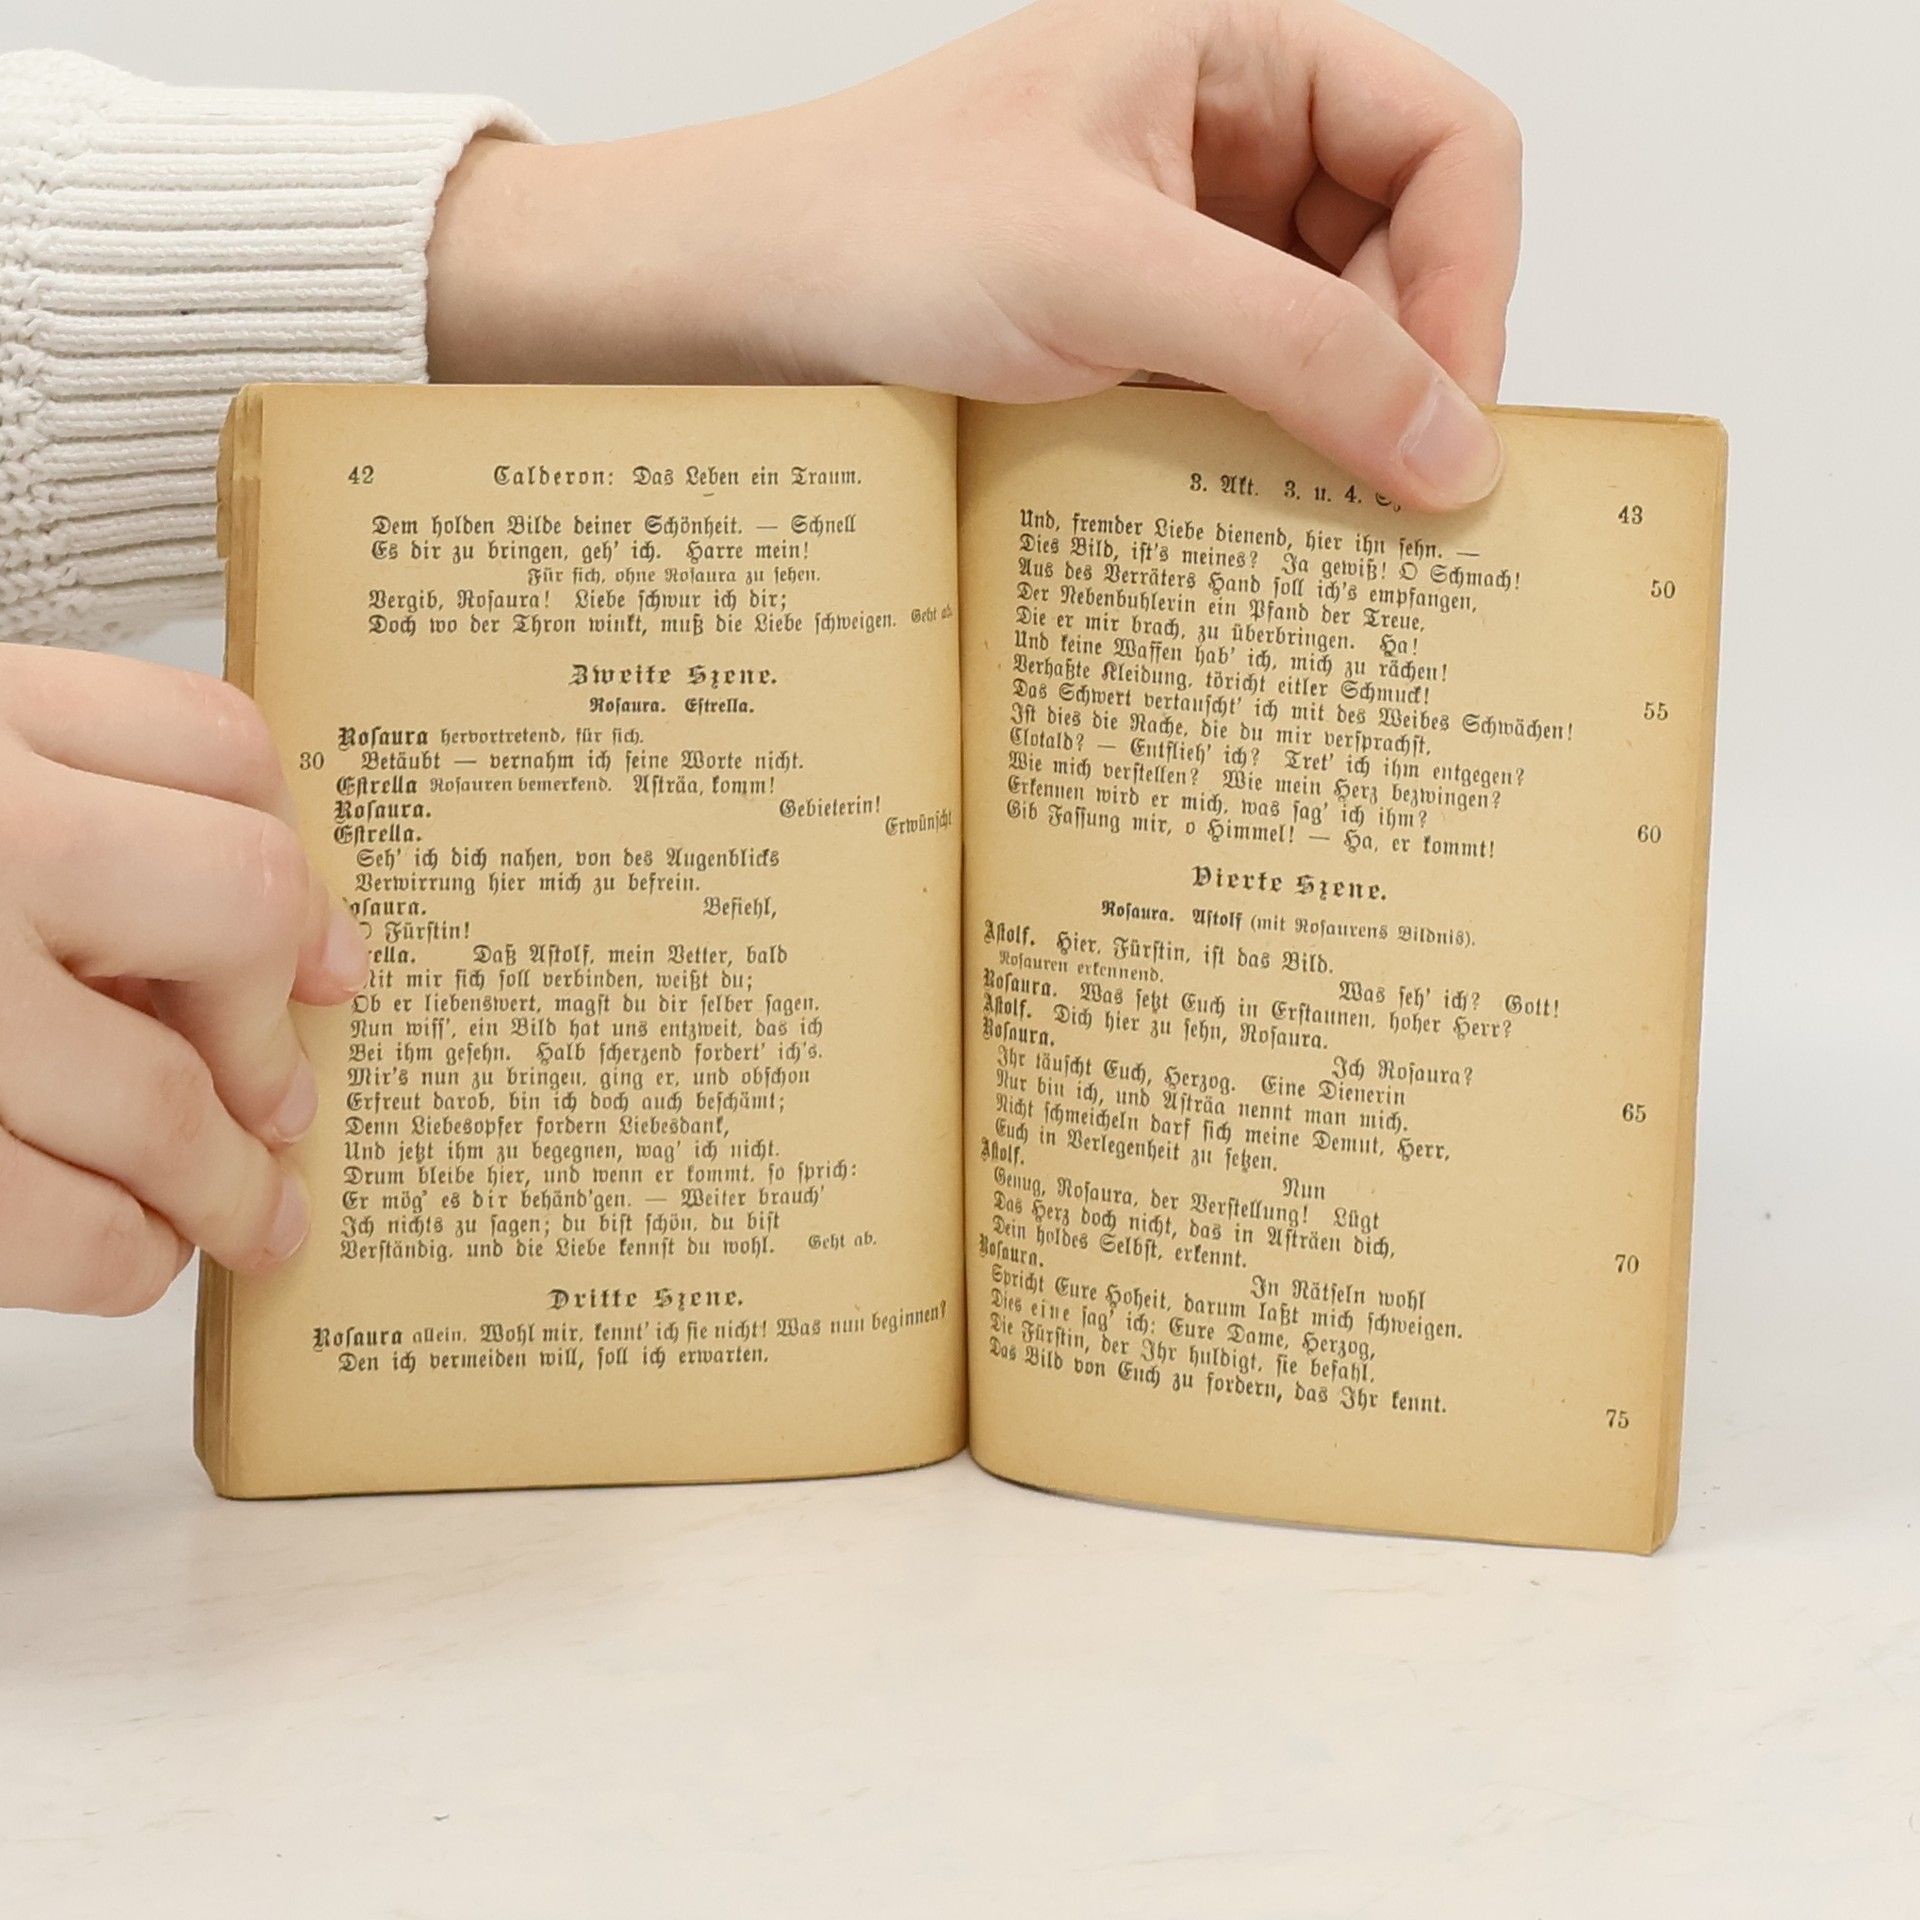 42 Calderon: Das Leben ein Traum.
Dem holden Bilde deiner Schönheit. — Schnell
Es dir zu bringen, geh' ich. Harre mein!
Für sich, ohne Rosaura zu sehen.
Vergib, Rosaura! Liebe schwur ich dir;
Doch wo der Thron winkt, muß die Liebe schweigen. Geht ab.
Zweite Szene.
Rosaura. Estrella.
Rosaura hervortretend, für sich.
30 Betäubt — vernahm ich seine Worte nicht.
Estrella Rosauren bemerkend. Asträa, komm!
Rosaura. Gebieterin!
Estrella. Erwünscht
Seh' ich dich nahen, von des Augenblicks
Verwirrung hier mich zu befrein.
osaura. Befiehl,
O Fürstin!
rella. Daß Astolf, mein Vetter, bald
Mit mir sich soll verbinden, weißt du;
Ob er liebenswert, magst du dir selber sagen.
Nun wiss', ein Bild hat uns entzweit, das ich
Bei ihm gesehn. Halb scherzend fordert' ich's.
Mir's nun zu bringen, ging er, und obschon
Erfreut darob, bin ich doch auch beschämt;
Denn Liebesopfer fordern Liebesdank,
Und jetzt ihm zu begegnen, wag' ich nicht.
Drum bleibe hier, und wenn er kommt, so sprich:
Er mög' es dir behänd'gen. — Weiter brauch'
Ich nichts zu sagen; du bist schön, du bist
Verständig, und die Liebe kennst du wohl. Geht ab.
Dritte Szene.
Rosaura allein. Wohl mir, kennt' ich sie nicht! Was nun beginnen?
Den ich vermeiden will, soll ich erwarten,
3. Akt. 3. u. 4. 43
Und, fremder Liebe dienend, hier ihn sehn. —
Dies Bild, ist's meines? Ja gewiß! O Schmach!
Aus des Verräters Hand soll ich's empfangen, 50
Der Nebenbuhlerin ein Pfand der Treue,
Die er mir brach, zu überbringen. Ha!
Und keine Waffen hab' ich, mich zu rächen!
Verhaßte Kleidung, töricht eitler Schmuck!
Das Schwert vertauscht' ich mit des Weibes Schwächen! 55
Ist dies die Rache, die du mir versprachst,
Clotald? — Entflieh' ich? Tret' ich ihm entgegen?
Wie mich verstellen? Wie mein Herz bezwingen?
Erkennen wird er mich, was sag' ich ihm?
Gib Fassung mir, o Himmel! — Ha, er kommt! 60
Vierte Szene.
Rosaura. Astolf (mit Rosaurens Bildnis).
Astolf. Hier, Fürstin, ist das Bild.
Rosauren erkennend. Was seh' ich? Gott!
Rosaura. Was setzt Euch in Erstaunen, hoher Herr?
Astolf. Dich hier zu sehn, Rosaura.
Rosaura. Ich Rosaura?
Ihr täuscht Euch, Herzog. Eine Dienerin
Nur bin ich, und Asträa nennt man mich. 65
Nicht schmeicheln darf sich meine Demut, Herr,
Euch in Verlegenheit zu setzen.
Astolf. Nun
Genug, Rosaura, der Verstellung! Lügt
Das Herz doch nicht, das in Asträen dich,
Dein holdes Selbst, erkennt. 70
Rosaura. In Rätseln wohl
Spricht Eure Hoheit, darum laßt mich schweigen.
Dies eine sag' ich: Eure Dame, Herzog,
Die Fürstin, der Ihr huldigt, sie befahl,
Das Bild von Euch zu fordern, das Ihr kennt.
75